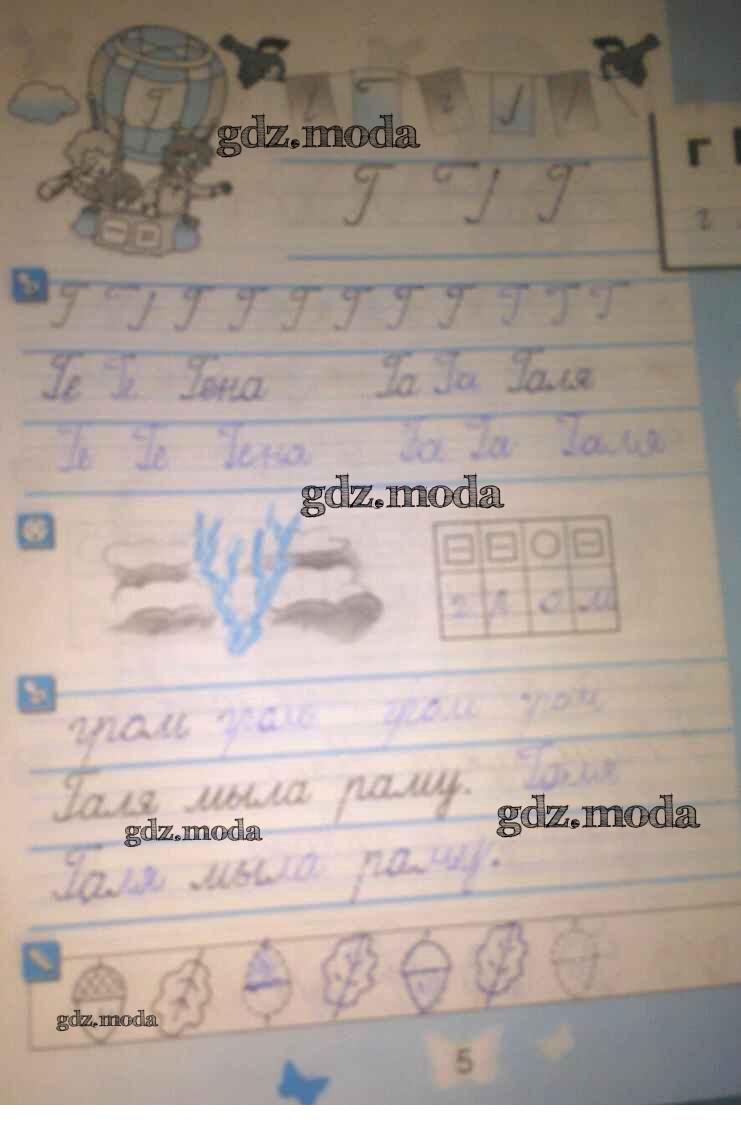 Г
г Г г Г Г
gdz.moda
Г Г Г
г
г
Г Г Г Г Г Г Г Г Г Г Г
Ге Ге Гена Га Га Галя
Ге Ге Гена Га Га Галя
gdz.moda
г р о м
гром гром гром гром
Галя мыла раму. Галя
gdz.moda gdz.moda
Галя мыла раму.
gdz.moda
5